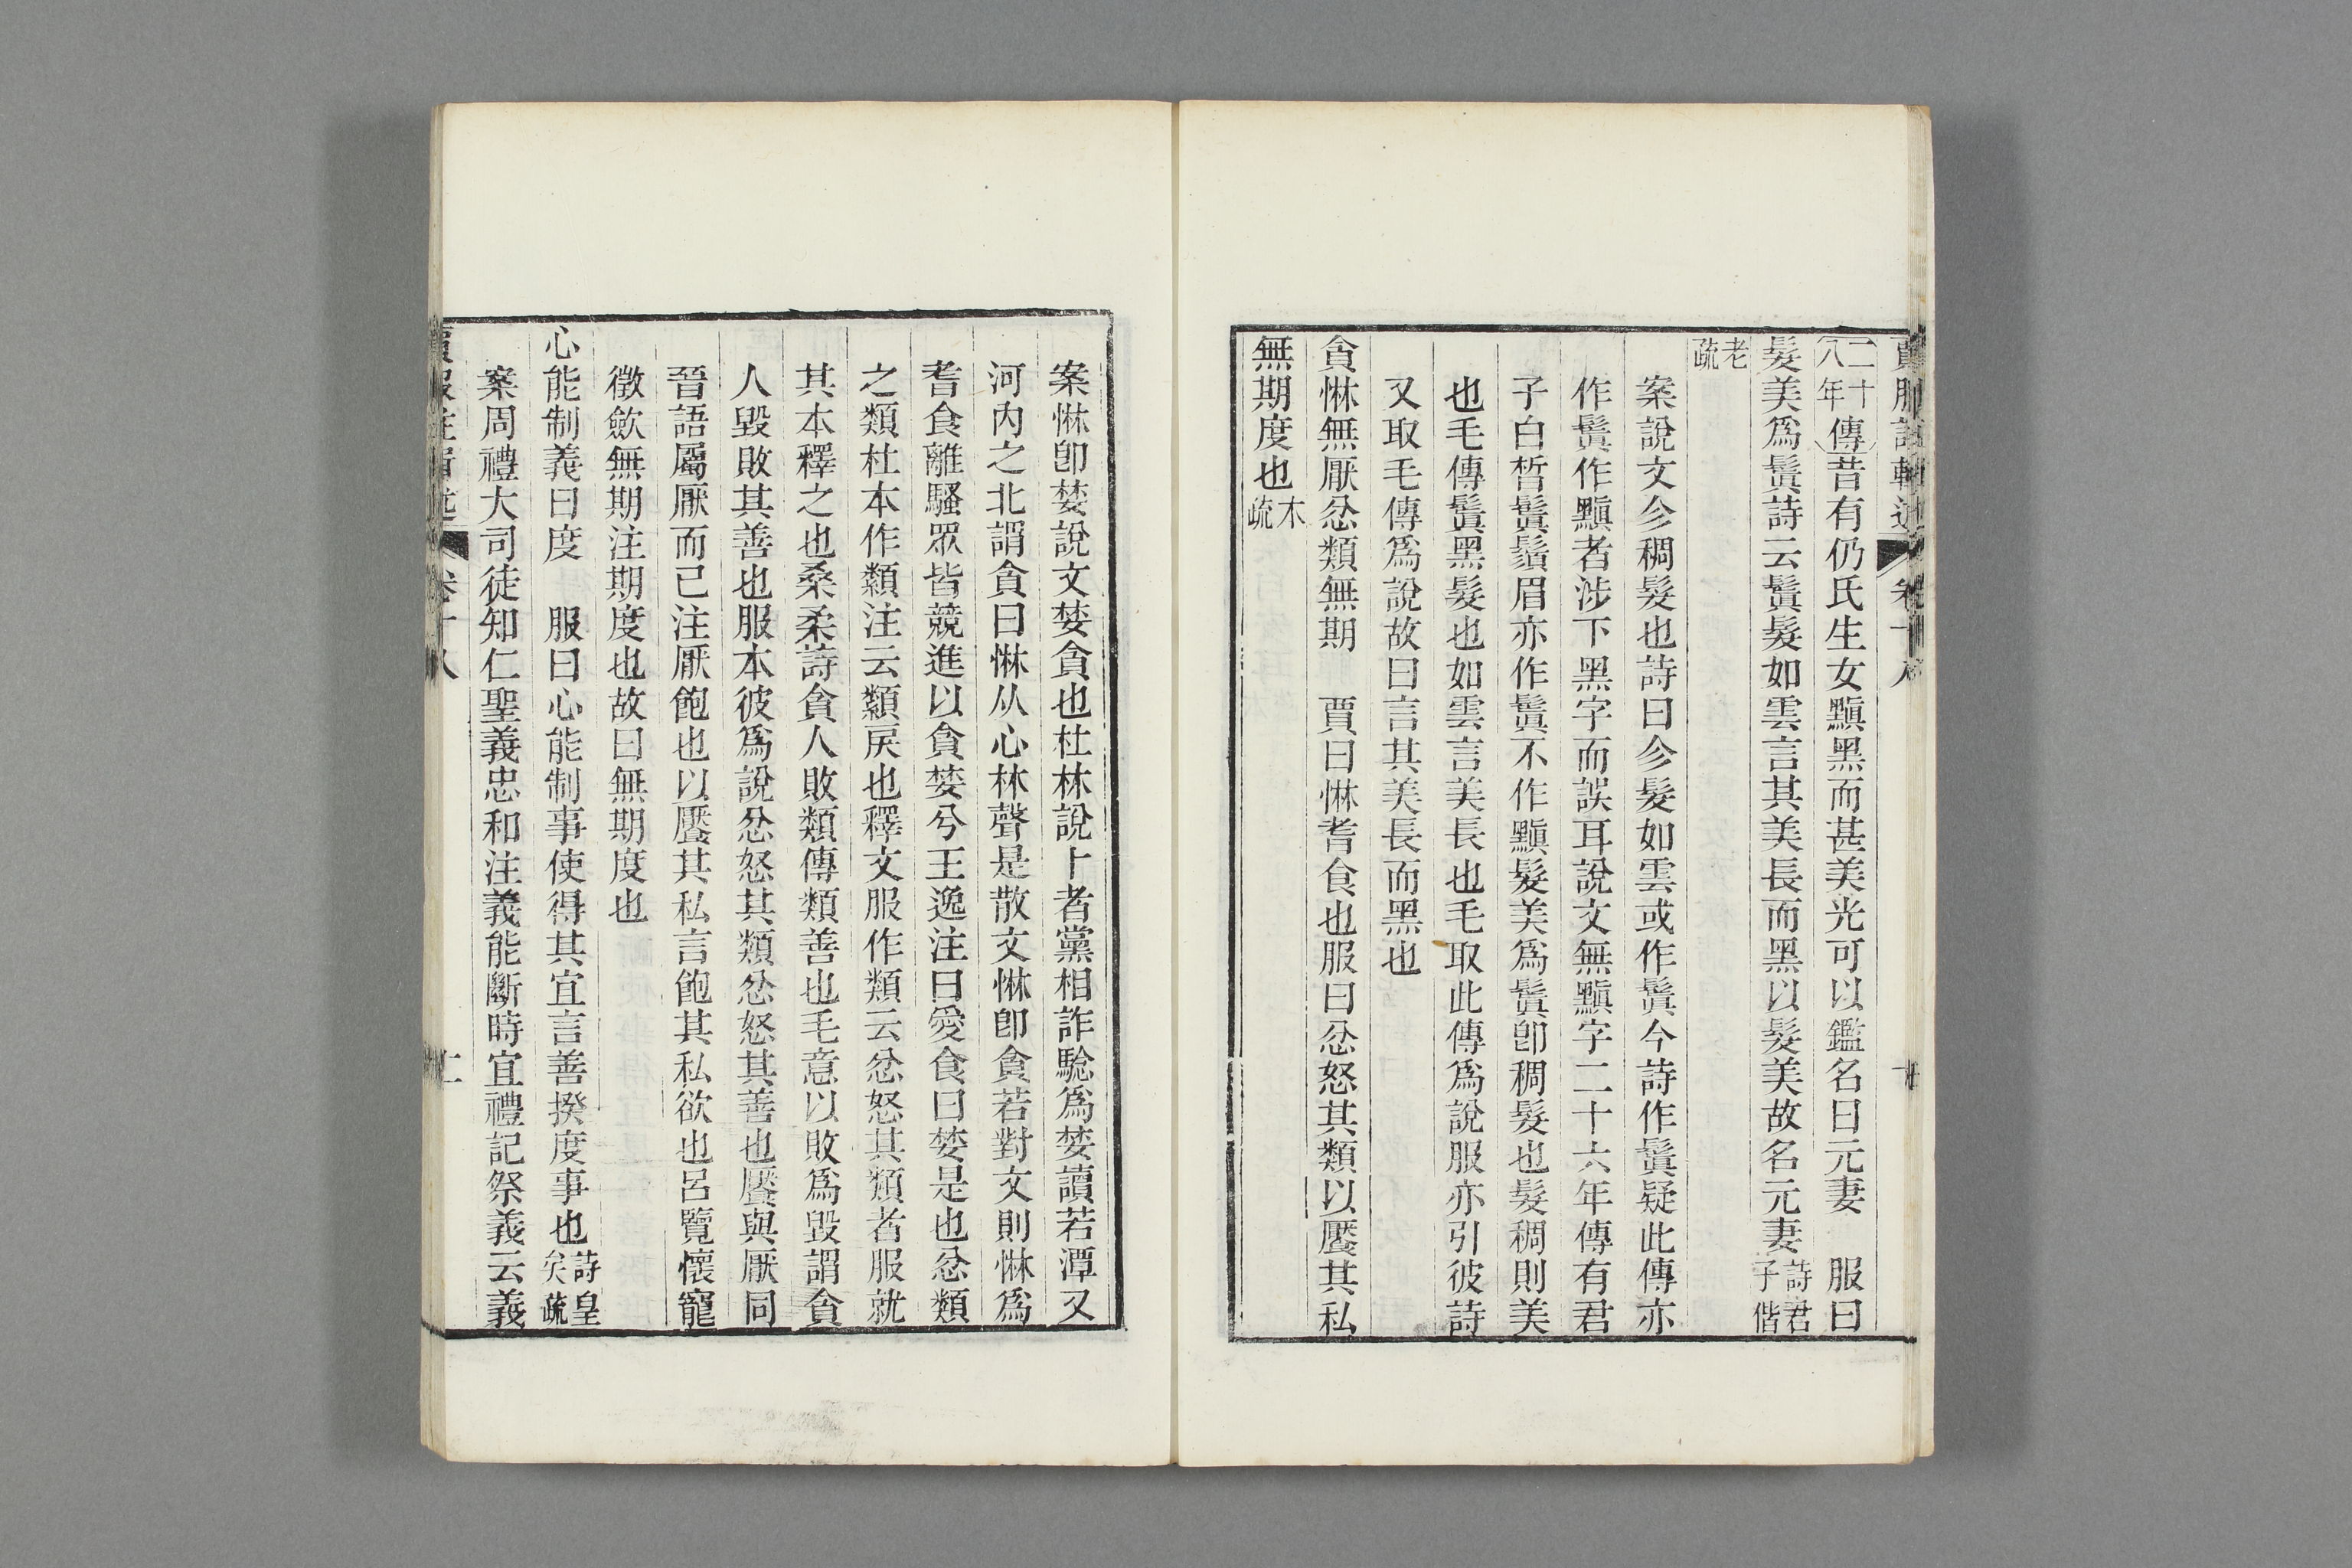 賈服註輯述 卷十八 十
二十八年傳昔有仍氏生女黰黑而甚美光可以鑑名曰元妻 服曰
髮美爲鬒詩云鬒髮如雲言其美長而黑以髮美故名元妻詩君子偕
老疏
案說文㐱稠髮也詩曰㐱髮如雲或作鬒今詩作鬒疑此傳亦
作鬒作黰者涉下黑字而誤耳說文無黰字二十六年傳有君
子白晳鬒鬚眉亦作鬒不作黰髮美爲鬒卽稠髮也髮稠則美
也毛傳鬒黑髮也如雲言美長也毛取此傳爲說服亦引彼詩
又取毛傳爲說故曰言其美長而黑也
貪惏無厭忿類無期 賈曰惏耆食也服曰忿怒其類以饜其私
無期度也本疏
案惏卽婪說文婪貪也杜林說卜者黨相詐驗爲婪讀若潭又
河內之北謂貪曰惏从心林聲是散文惏卽貪若對文則惏爲
耆食離騷眾皆競進以貪婪兮王逸注曰愛食曰婪是也忿類
之類杜本作纇注云纇戾也釋文服作類云忿怒其類者服就
其本釋之也桑柔詩貪人敗類傳類善也毛意以敗爲毀謂貪
人毀敗其善也服本彼爲說忿怒其類忿怒其善也饜與厭同
晉語屬厭而已注厭飽也以饜其私言飽其私欲也呂覽懷寵
徵歛無期注期度也故曰無期度也
心能制義曰度 服曰心能制事使得其宜言善揆度事也詩皇矣疏
案周禮大司徒知仁聖義忠和注義能斷時宜禮記祭義云義
卷十八